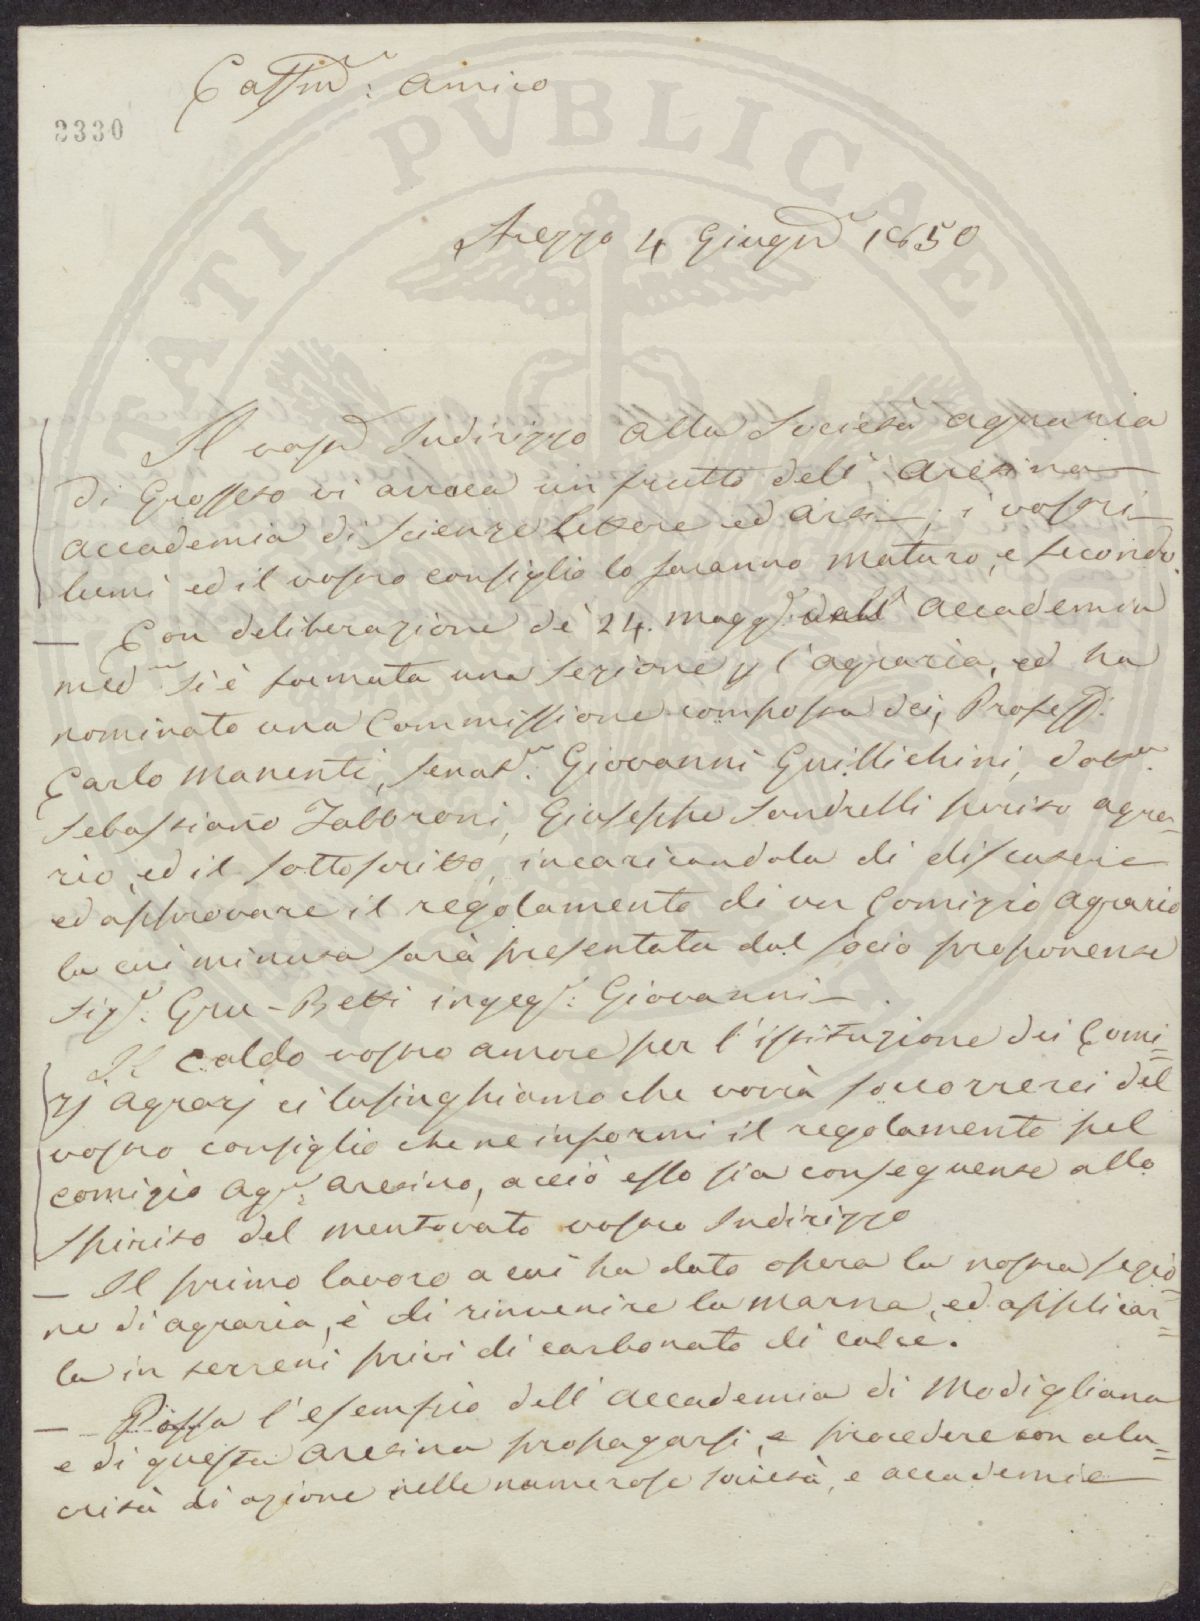 Caffmo: amico
2330
Arezzo 4 Giugno 1850
Il vostro Indirizzo alla Società agraria
di Grosseto vi arreca un frutto dell'aretina
accademia di scienze lettere ed arti; i vostri
lumi ed il vostro consiglio lo faranno maturo, e fecondo.
— Con deliberazione de' 24. Magg: dall' accademia
med.ma si è formata una sezione p l'agraria, ed ha
nominato una Commissione composta dei, Profess:
Carlo Manenti, senat.e: Giovanni Guillichini, dott.r
Sebastiano Fabbroni, Giuseppe Sandrelli perito agra=
rio, ed il sottoscritto, incaricandola di discutere
ed approvare il regolamento di un Comizio agrario
la cui minuta sarà presentata dal socio proponente
Sigr: Gru-Betti ingegr: Giovanni.
Il caldo vostro amore per l'istituzione dei Comi=
zj agrarj ci lusinghiamo che vorrà soccorrerci del
vostro consiglio che ne informi il regolamento pel
comizio agr: aretino, acciò esso sia conseguente allo
spirito del mentovato vostro Indirizzo
— Il primo lavoro a cui ha dato opera la nostra sezio=
ne di agraria, è di rinvenire la marna, ed applicar=
la in terreni privi di carbonato di calce.
— Possa l'esempio dell'accademia di Modigliana
e di questa aretina propagarsi, e procedere con ala=
crità di azione nelle numerose società, e accademie
PVBLICAE